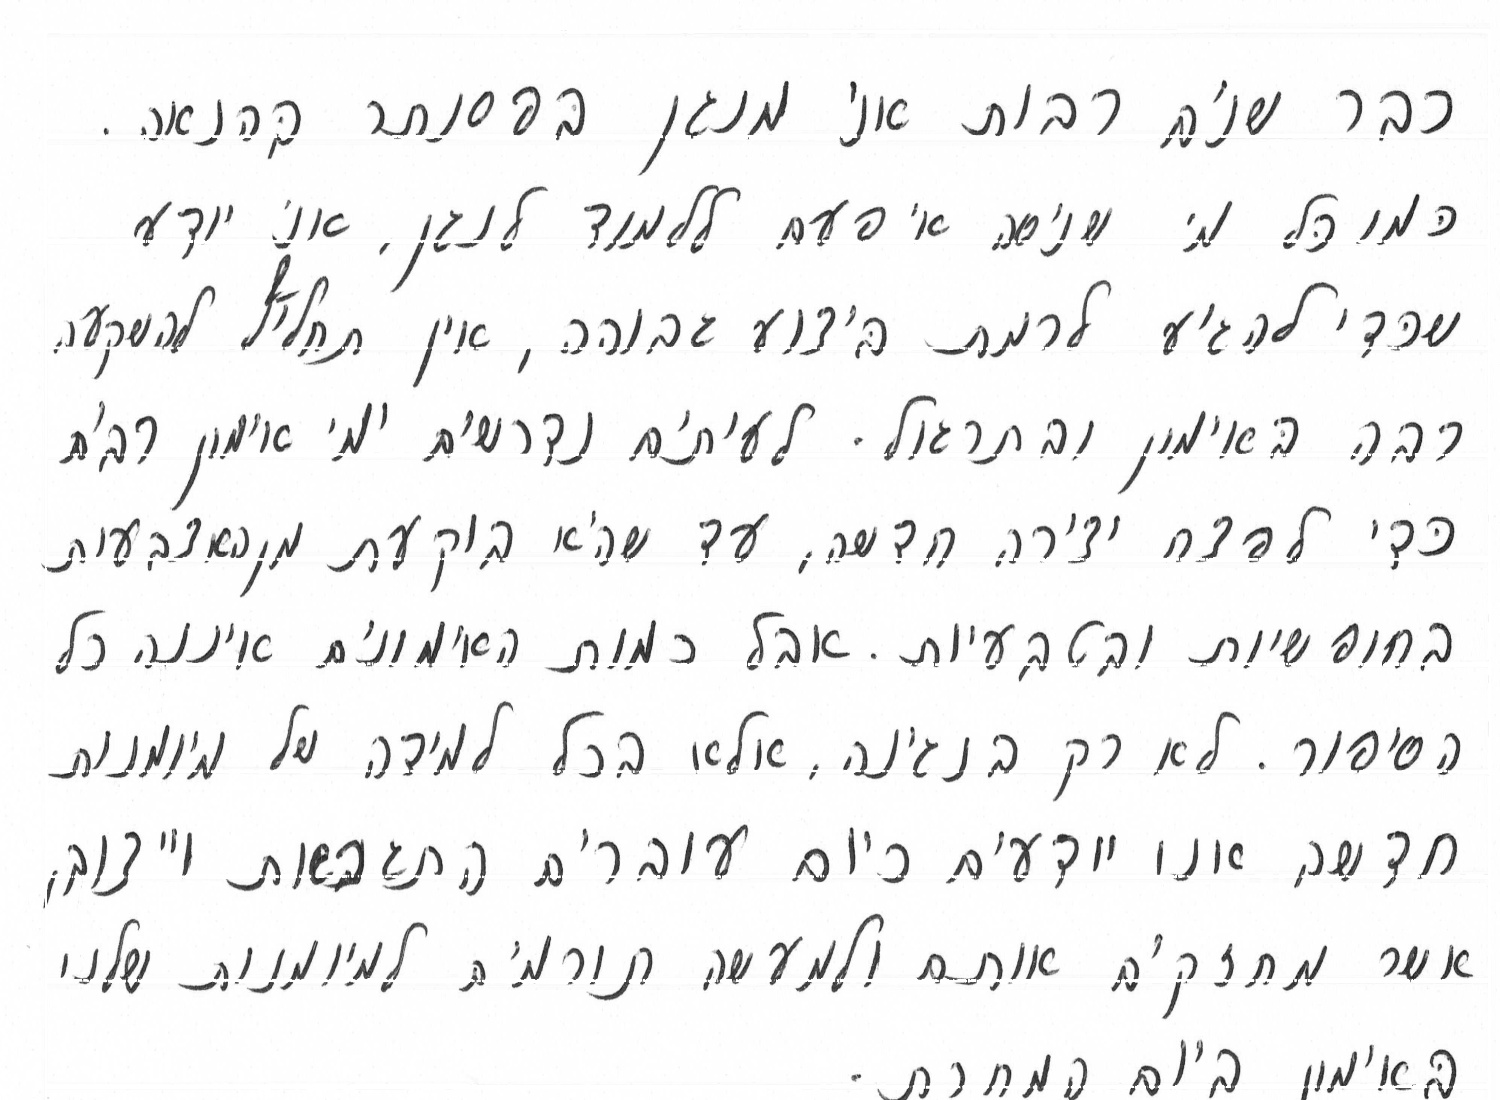 כבר שנים רבות אני מנגן בפסנתר בהנאה.
כמו כל מי שניסה אי פעם ללמוד לנגן, אני יודע
שכדי להגיע לרמת ביצוע גבוהה, אין תחליף להשקעה
רבה באימון ובתרגול. לעיתים נדרשים ימי אימון רבים
כדי לפצח יצירה חדשה, עד שהיא בוקעת מן האצבעות
בחופשיות ובטבעיות. אבל כמות האימונים איננה כל
הסיפור. לא רק בנגינה, אלא בכל למידה של מיומנות
חדשה אנו יודעים כיום עוברים התגבשות וייצוב,
אשר מחזקים אותם ולמעשה תורמים למיומנות שלנו
באימון ביום המחרת.